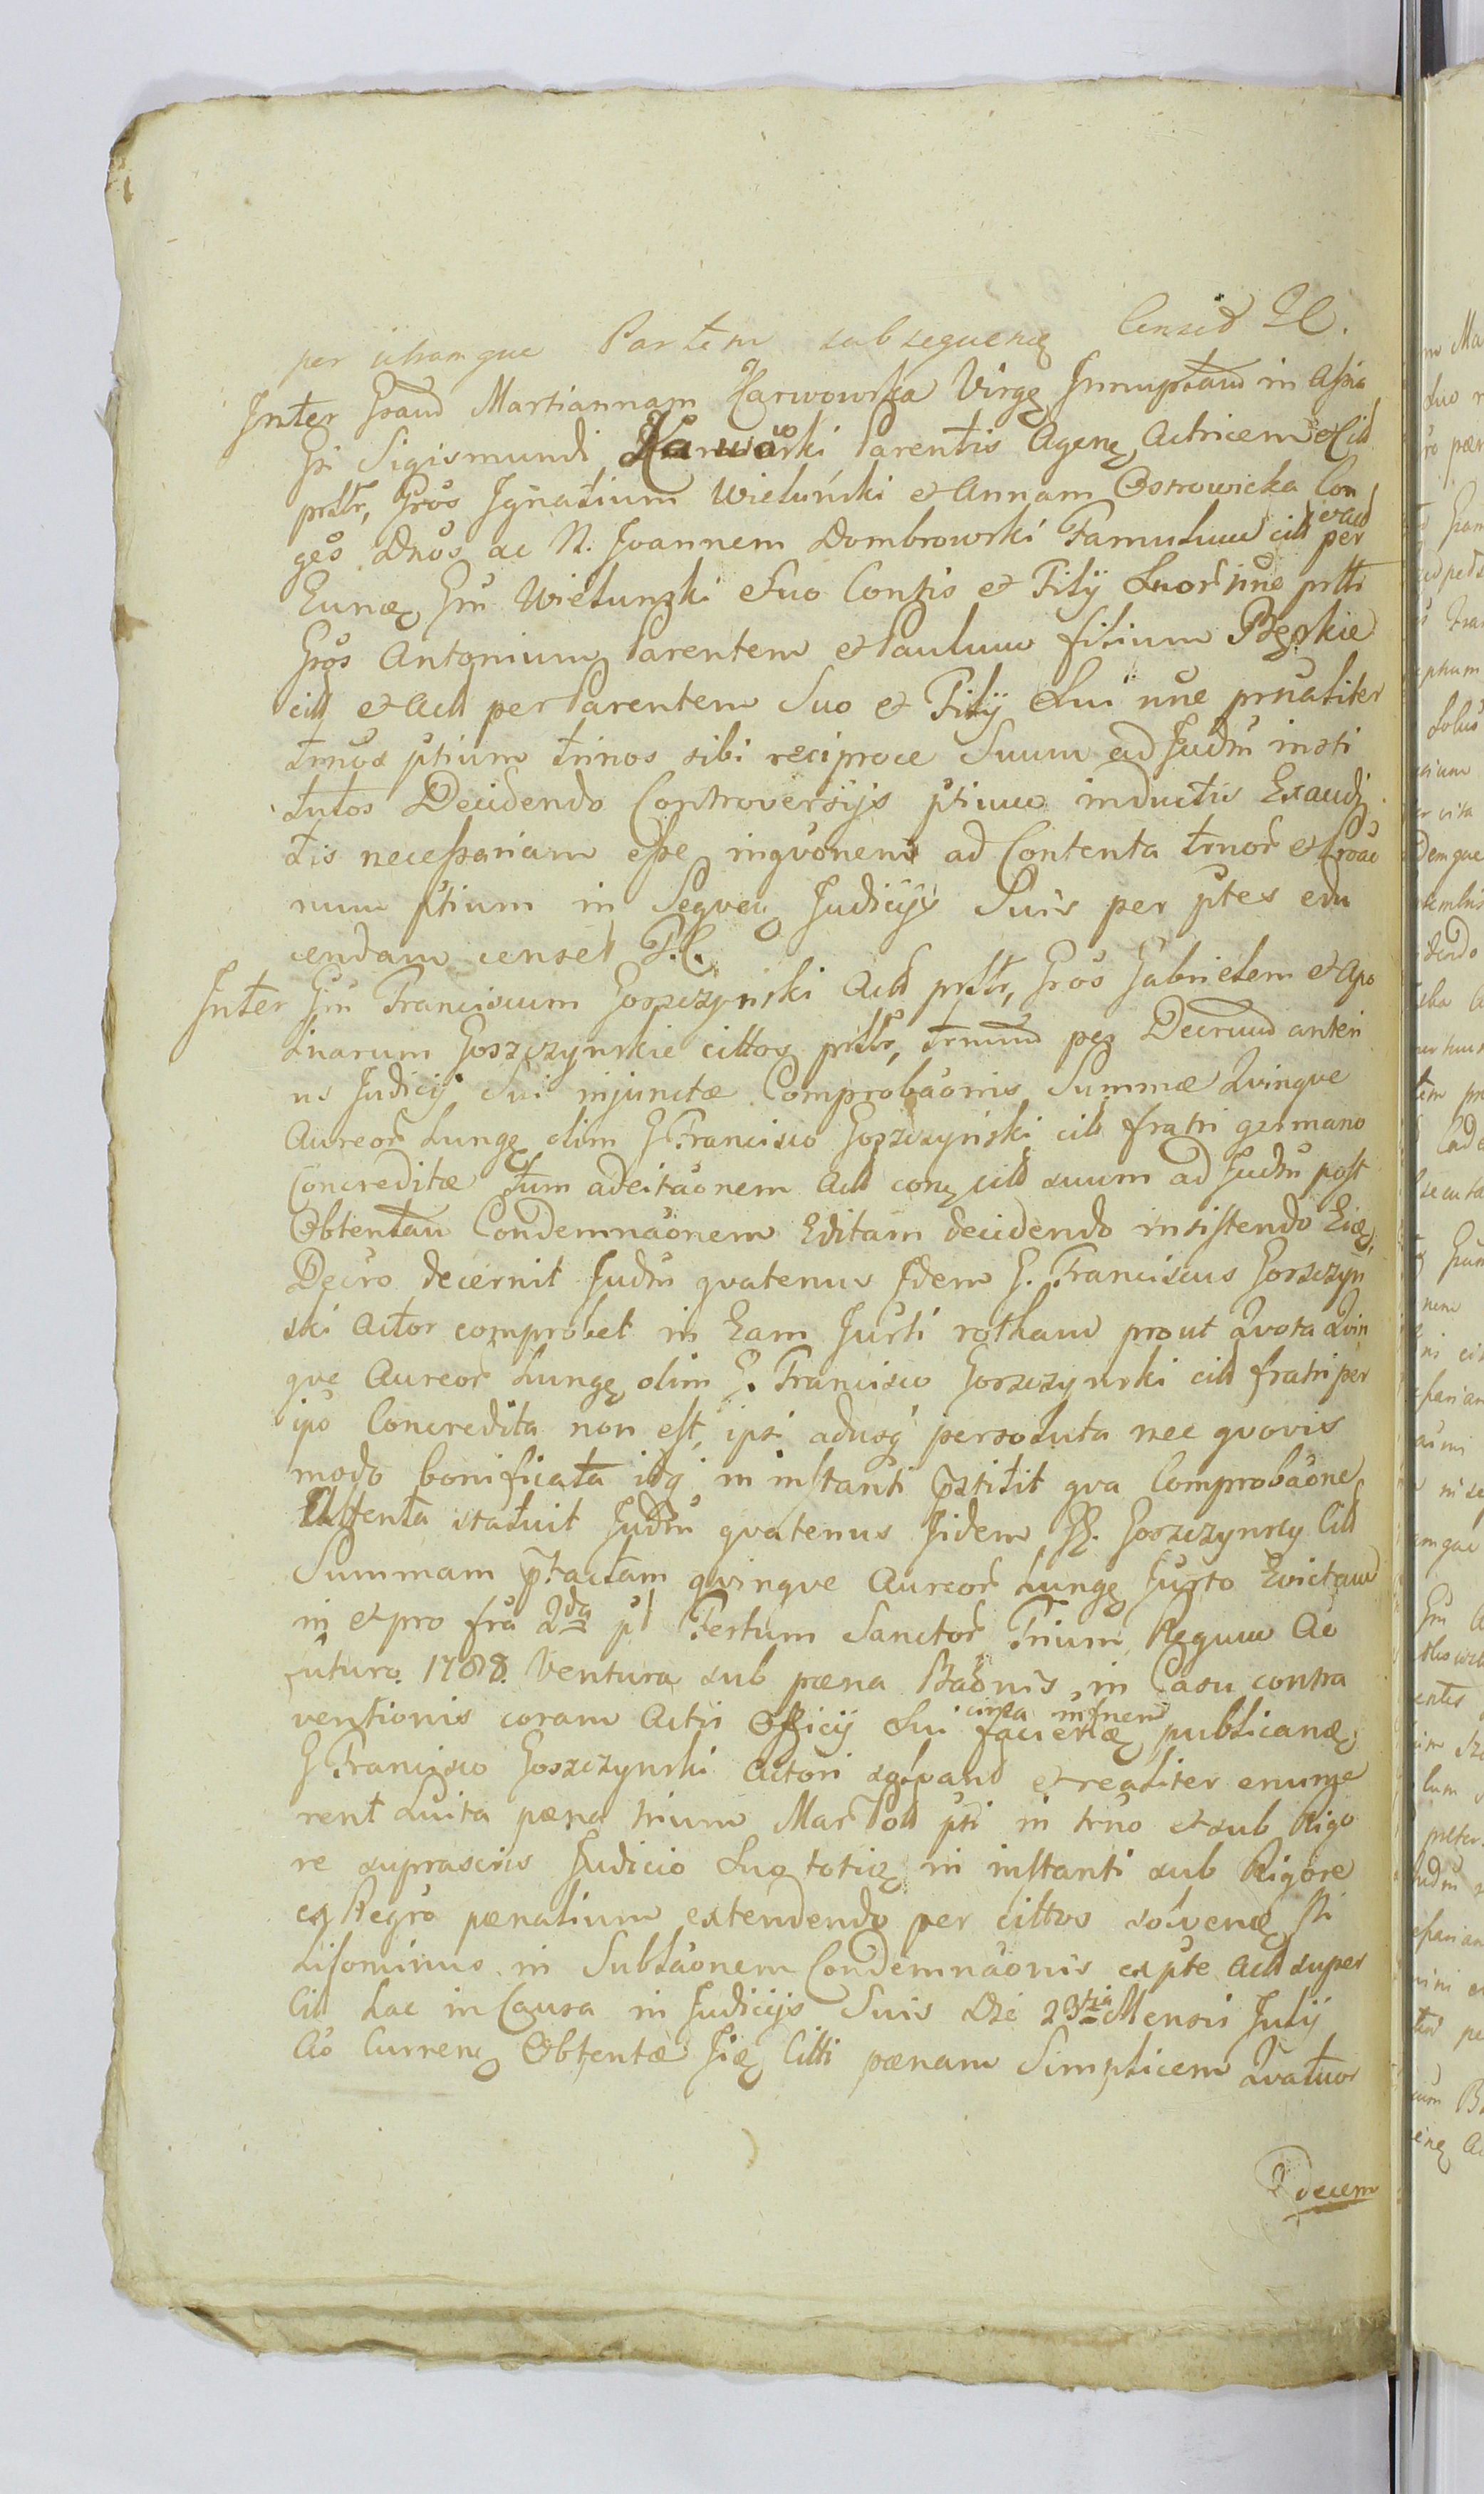 per utramque Partem subsequenę Censet Pl.
Inter Gsam Martiannam Karwowska Virgę Innuptam in Assia
Gsi Sigismundi Karwowski Parentis Agenę Actricem et Citt
prsltr, Gros Ignatium Wieluński et Annam Ostrowicka Con
ges Dnos ac N. Joannem Dombrowski Famulum citt et actt per
Eunæ Gm Wielunski Suo Contis et Filij Suor nne prtti
Gros Antonium Parentem et Paulum filium Rzepkie
citt et Actt per Parentem Suo et Filij Sui nne prnaliter
trnos ptium trinos sibi reciproce Suum ad Judm insti
tutos Decidendo Controversijs ptium inductis Exaudi
tis necessariam esse inqvonem ad Contenta trnor et Proac
num ptium in Seqven Judicijs Suis per ptes edu
cendam censet P.C.
Inter Gm Franciscum Goszczynski Actt prsltr, Gros Gabrielem et Apo
linarum Goszczynskie cittos prsltr, trminum per Decrum anteri
us Judicij Sui injunctæ Comprobaonis Summæ Qvinqve
Aureor Lungę olim G Francisco Goszczyński citt fratri germano
Concreditæ tum adcitaonem Actt conę citt suum ad Judm post
Obtentam Condemnaonem Editam decidendo insistendo Eiæ
Decro decernit Judm qvatenus Idem G. Franciscus Goszczyn
ski Actor comprobet in Eam Jurti rotham prout Qvota Qvin
qve Aureor Lungę olim G. Francisco Goszczynski citt fratri per
ipo Concredita non est, ipsi adusq persoluta nec qvovis
modo bonificata idq in instanti prstitit qva Comprobaone
Attenta statuit Judm qvatenus Iidem GG. Goszczynscy Citt
Summam prtactam qvinqve Aureor Lungę Jurto Evictam
in et pro fra 2da pt Festum Sanctor Trium Regum Ao
futuro 1788. Ventura sub pæna Baonis in Casu contra
ventionis coram Actis Officij Sui circa infnem faciendæ publicandæ
G Francisco Goszczynski Actori solvand et realiter enume
rent Luita pæna trium Mar Poll pti in trno et sub Rigo
re suprascris Judicio Suo totię in instanti sub Rigore
ex Regro pænalium extendendo per cittos solvenæ sti
Lisominus in Sublaonem Condemnaonis ex pte Actt super
Citt hac in Causa in Judicijs Suis Die 23tia Mensis Julij
Ao Currenę Obtentæ Iiæ Citti pænam Simplicem Qvatuor
Decem